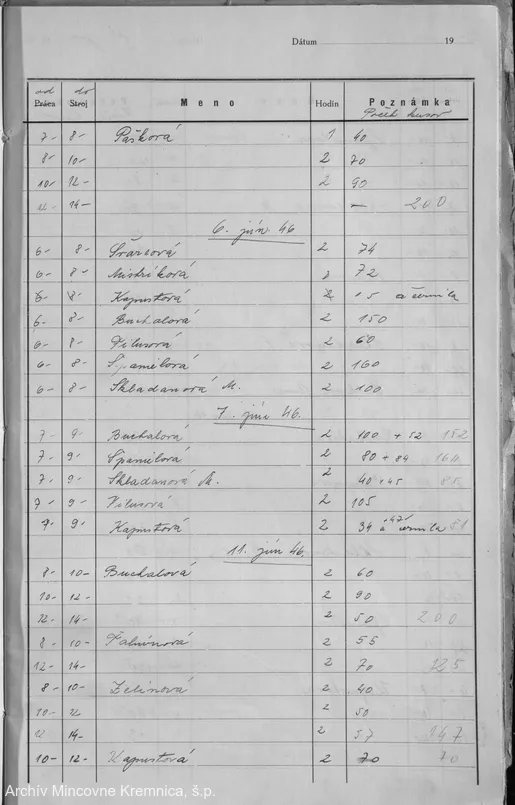 Dátum 19
od do
Práca Stroj Meno Hodín Poznámka
Počet kusov
7- 8- Pašková 1 40
8- 10- 2 70
10- 12- 2 90
12- 14- — 200
6. jún 46
6- 8- Švarcová 2 74
6- 8- Mistríková 2 72
6- 8- Kapustová 2 15 a čermila
6- 8- Buchalová 2 150
6- 8- Filusová 2 60
6- 8- Španielová 2 160
6- 8- Skladanová M. 2 100
7. jún 46.
7- 9- Buchalová 2 100 + 52 152
7- 9- Španielová 2 80 + 84 164
7- 9- Skladanová M. 2 40 + 45 85
7- 9- Filusová 2 105
7- 9- Kapustová 2 34 a 47 čermila 81
11. jún 46.
8- 10- Buchalová 2 60
10- 12- 2 90
12- 14- 2 50 200
8- 10- 2 55
12- 14- 2 70 125
8- 10- Zelinová 2 40
10- 12 2 50
12 14- 2 57 147
10- 12- Kapustová 2 70 70
Archív Mincovne Kremnica, š.p.